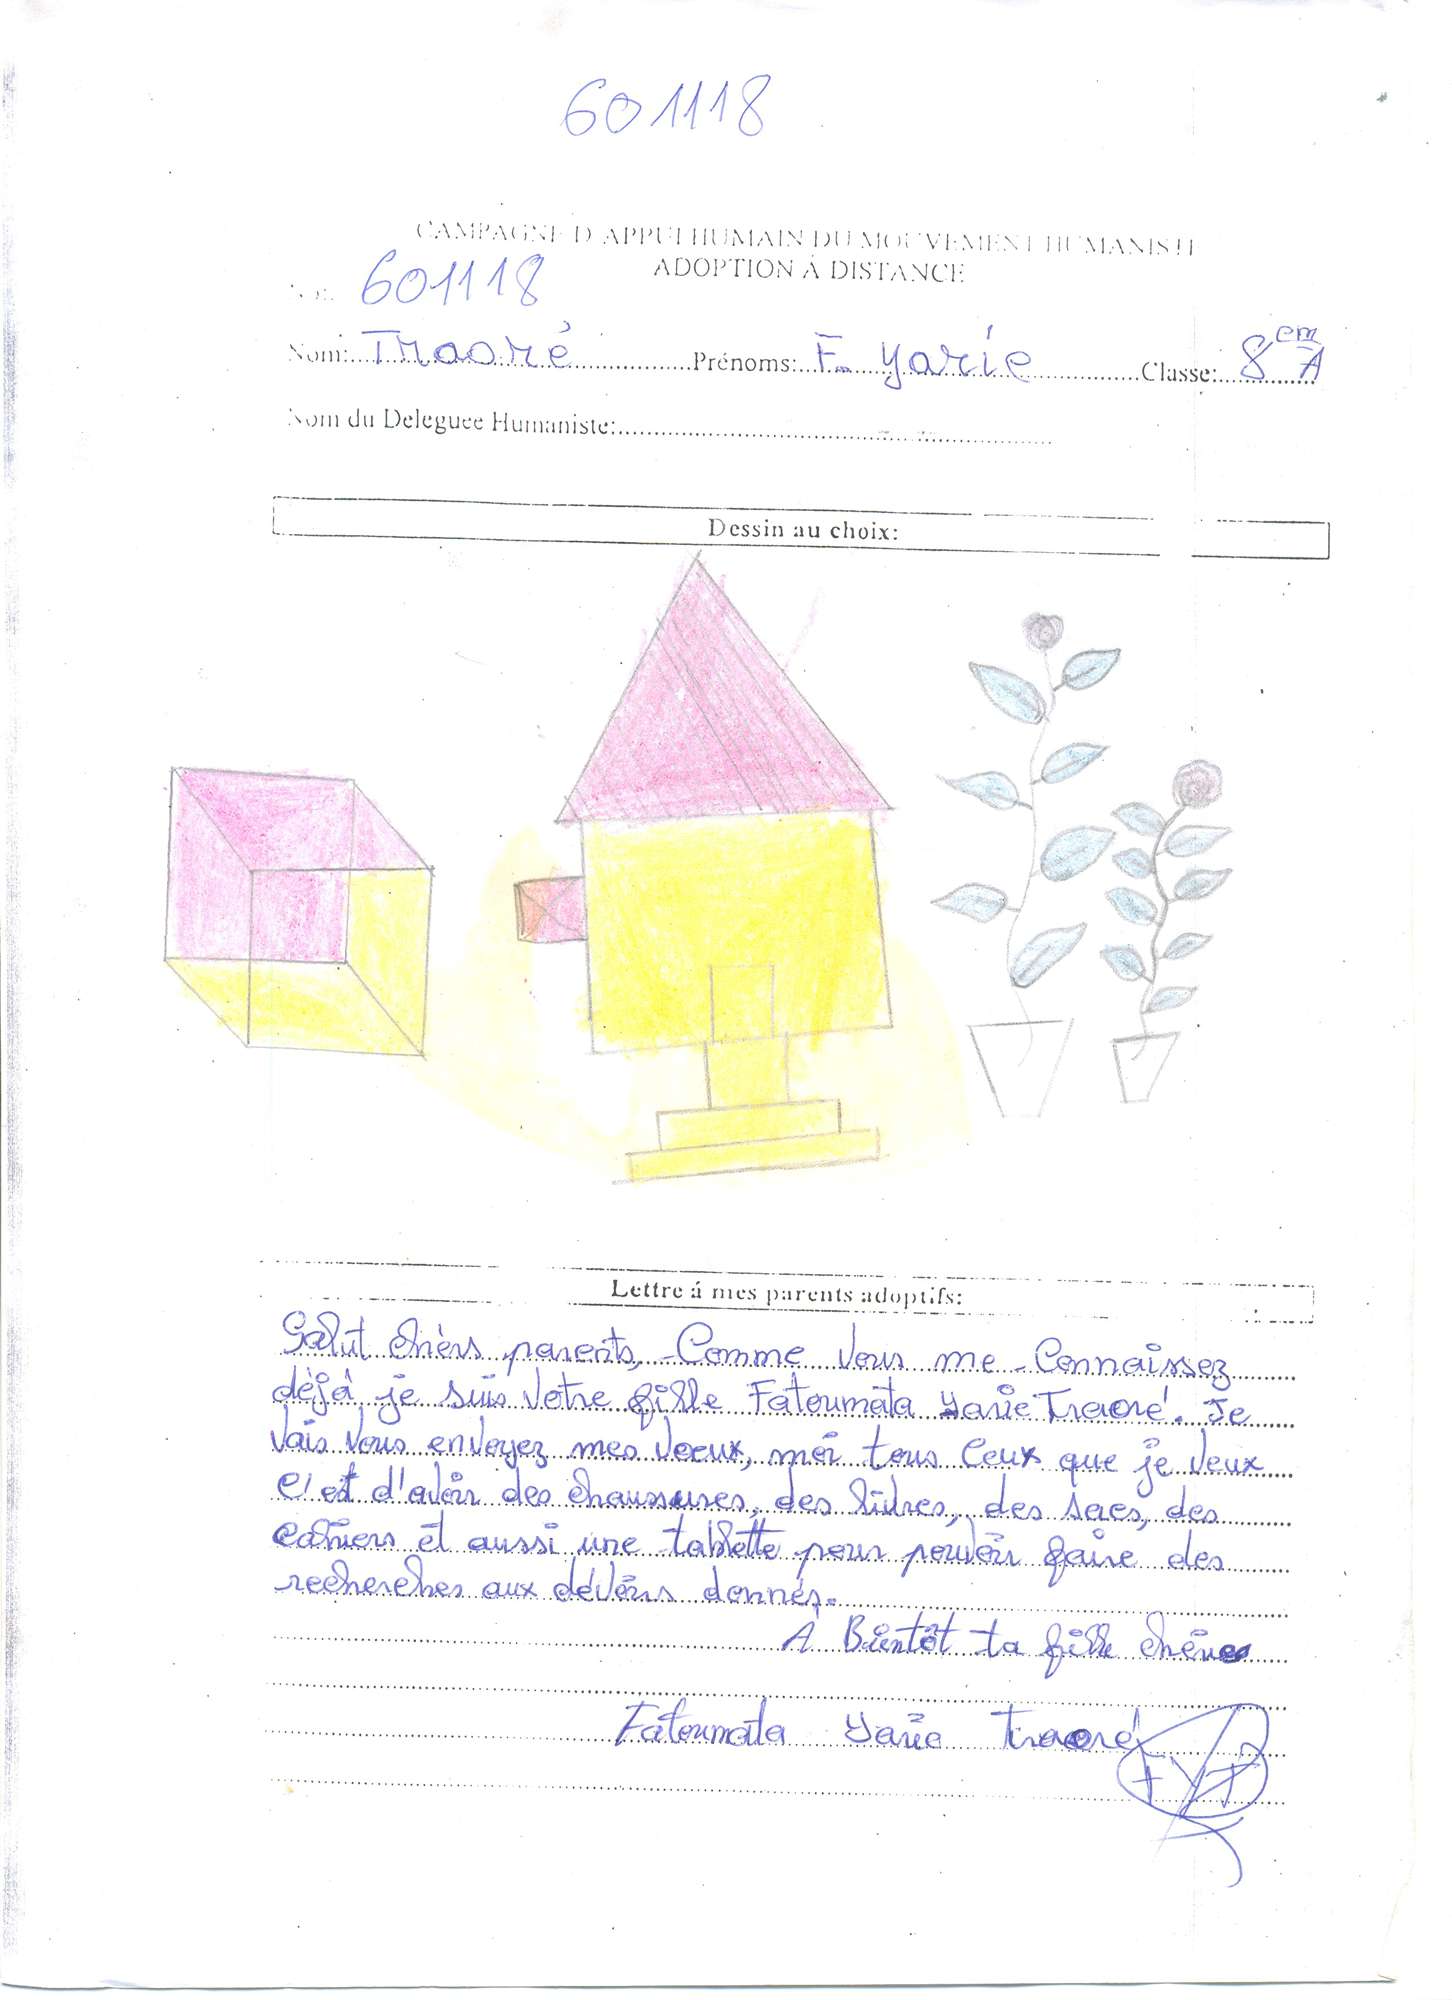 601118
CAMPAGNE D'APPUI HUMAIN DU MOUVEMENT HUMANISTE
ADOPTION À DISTANCE
601118
Nom: Traoré Prénoms: F. Yarie Classe: 8em A
Nom du Deleguee Humaniste:
Dessin au choix:
Lettre á mes parents adoptifs:
Salut chèrs parents, Comme vous me Connaissez
déjà je suis votre fille Fatoumata Yarie Traoré. Je
vais vous envoyez mes voeux, moi tous Ceux que je veux
c'est d'avoir des chaussures, des livres, des sacs, des
cahiers et aussi une tablette pour pouvoir faire des
recherches aux dévoirs donnés.
À Bientôt ta fille chère
Fatoumata Yarie Traoré
FYT